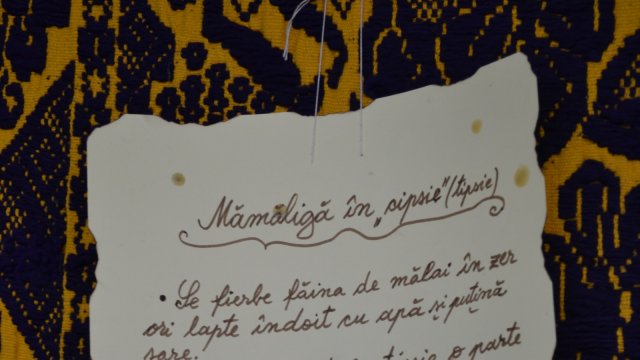 Mămăligă în „cipsie" (tipsie)
• Se fierbe făina de mălai în zer
ori lapte îndoit cu apă și puțină
sare.
tipsie o parte